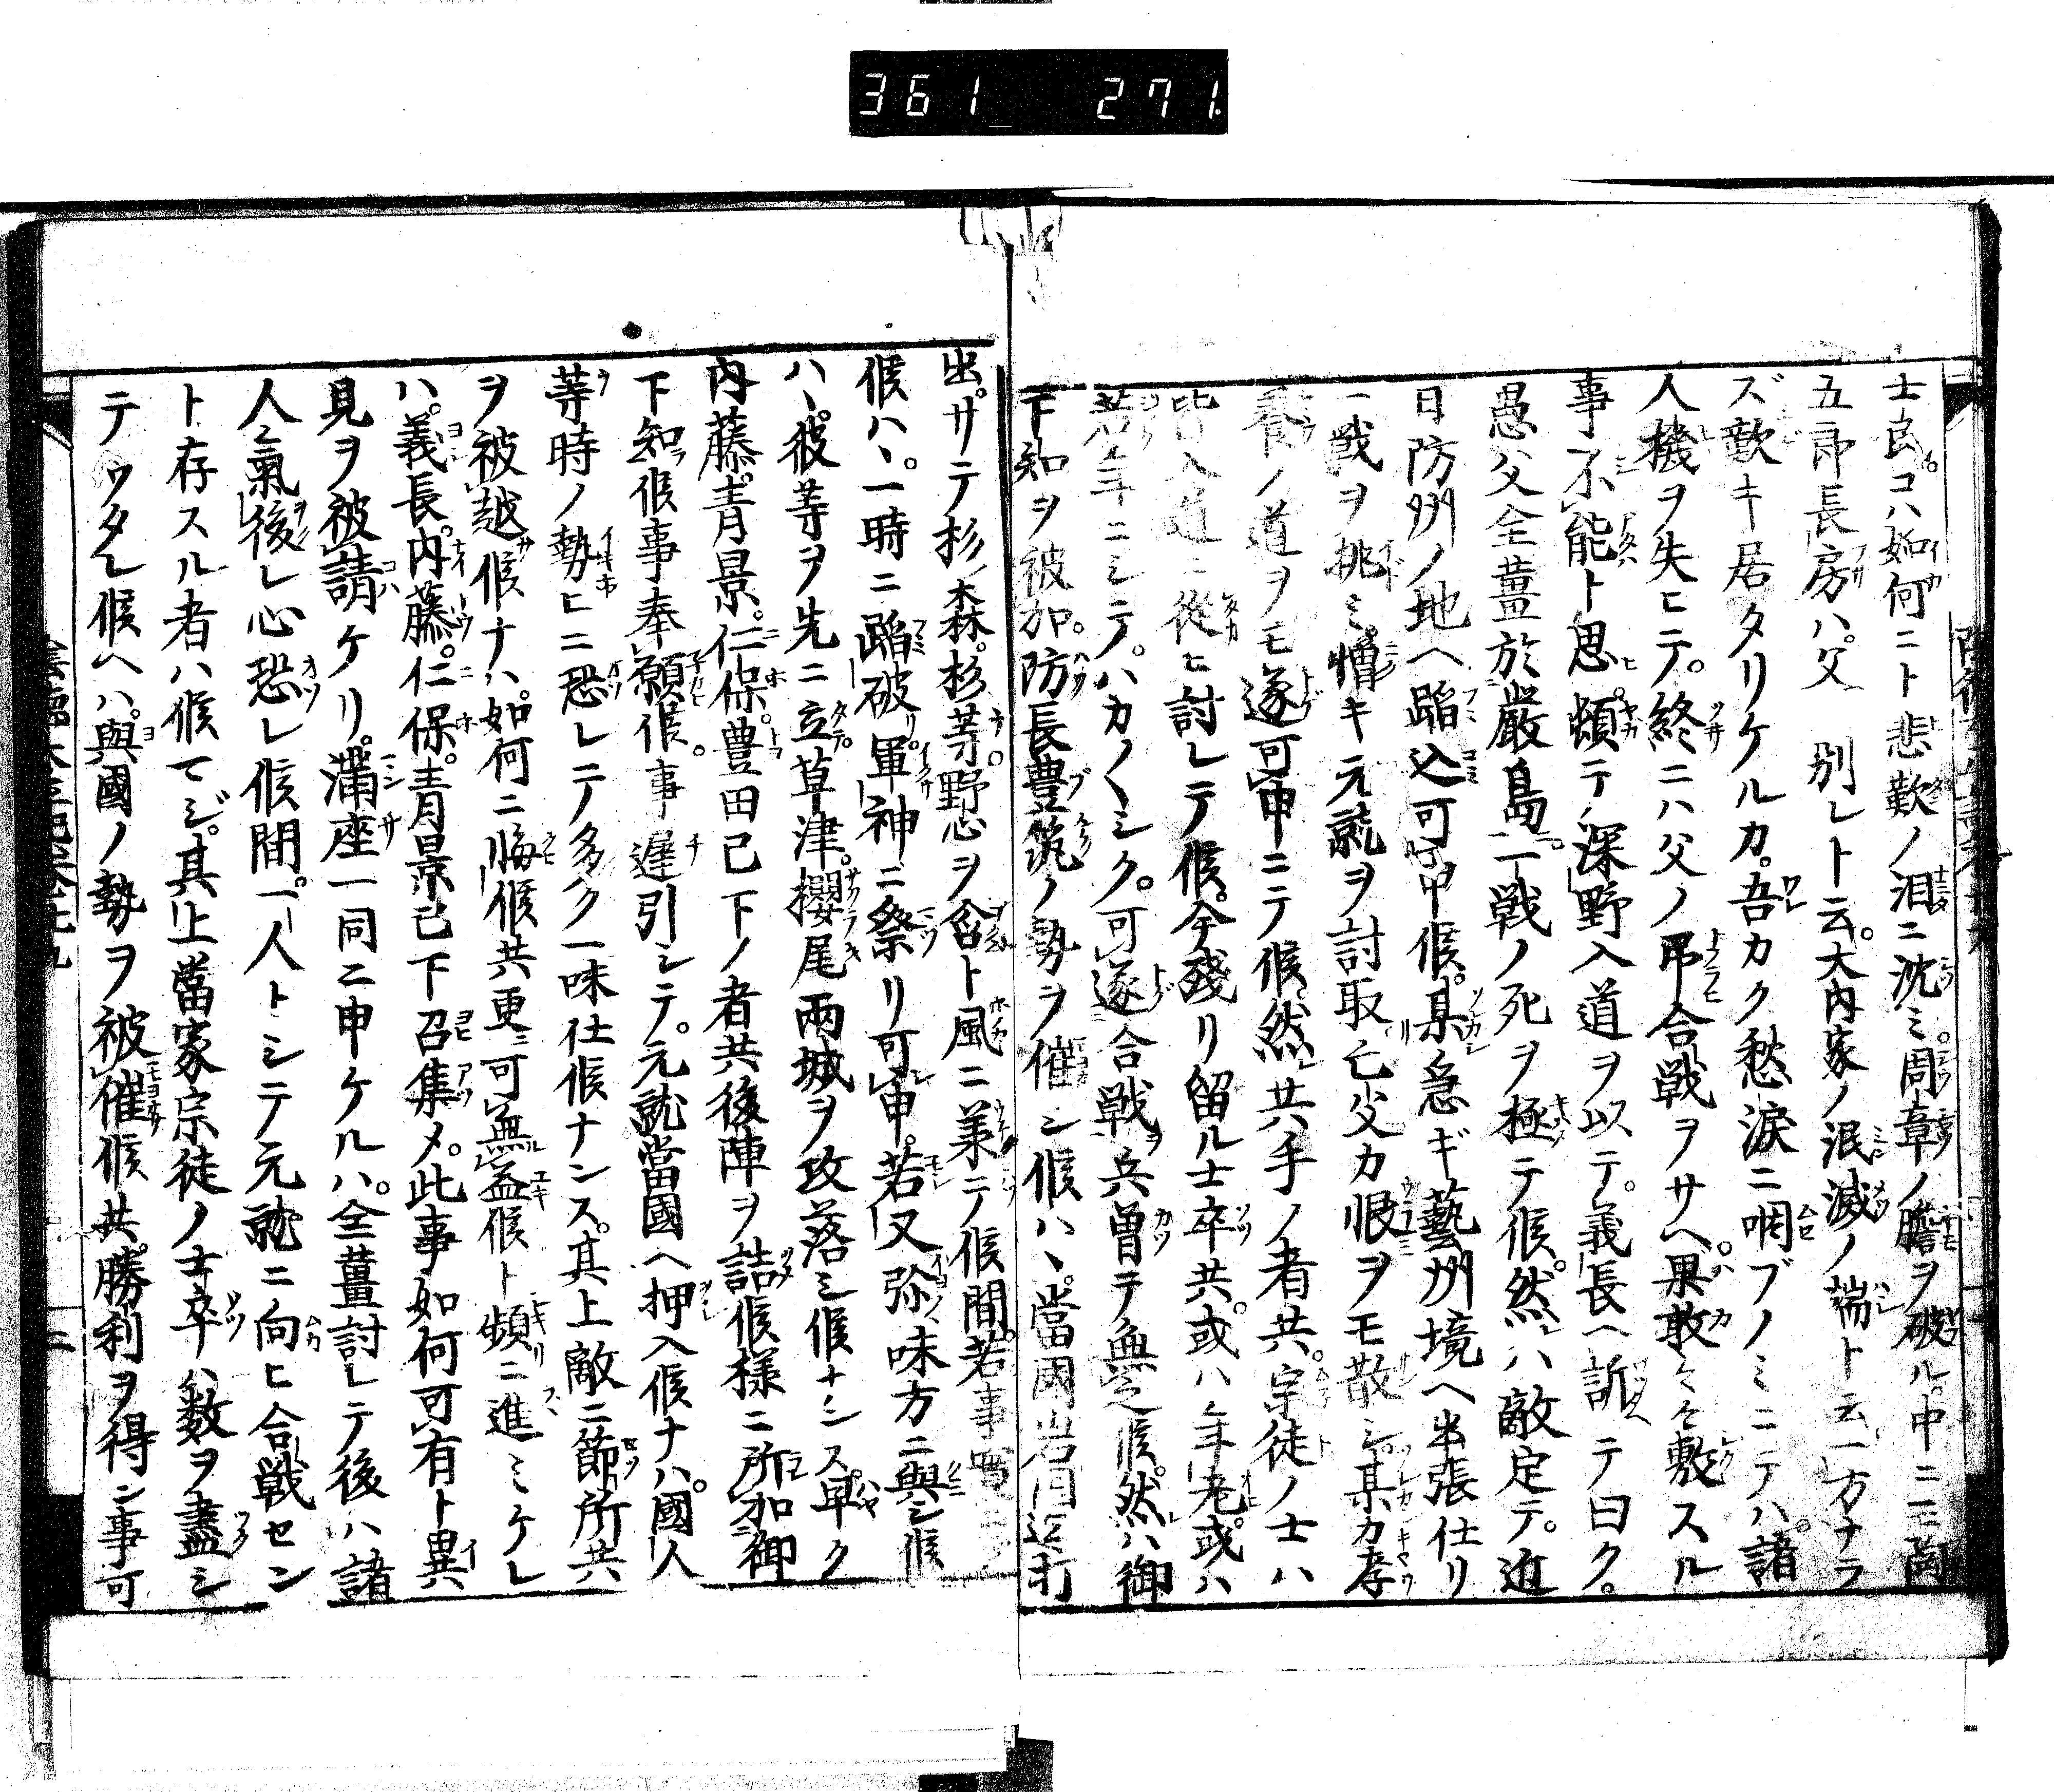 361 271.
士民。コハ如何ニト悲歎ノ泪ニ沈ミ。周章ノ膽ヲ破ル。中ニモ陶
五郎長房ハ。父別レト云。大内家ノ泯滅ノ端ト云。一方ナラ
ズ歎キ居タリケルカ。吾カク愁涙ニ咽ブノミニテハ。諸
人機ヲ失ヒテ。終ニハ父ノ吊合戦ヲサヘ。果敢々々敷スル
事不能ト思ヒ。頓テ深野入道ヲ以テ。義長ヘ訴ヘテ曰ク。
愚父全薑於嚴島。一戦ノ死ヲ極テ候。然ハ敵定テ。近
日防州ノ地ヘ蹈込可申候。某急ギ藝州境ヘ出張仕リ
一戦ヲ挑ミ。憎キ元就ヲ討取。亡父カ恨ヲモ散シ。某カ孝
養ノ道ヲモ遂可申ニテ候。然共手ノ者共。宗徒ノ士ハ
皆入道ニ從ヒ討レテ候。今殘リ留ル士卒共。或ハ年老。或ハ
若年ニシテ。ハカ〱シク。可遂合戦ヲ兵曽テ無之候。然ハ御
下知ヲ被加。防長豊筑ノ勢ヲ催シ候ハヽ。當國岩國迄打
出。サテ杉森。杉等。野心ヲ含ト風ニ兼テ候間。若事實ニ
候ハヽ。一時ニ蹈破リ。軍神ニ祭リ可申。若又弥味方ニ與シ候
ハヽ。彼等ヲ先ニ立草津。櫻尾兩城ヲ攻落シ候ナンス。早ク
内藤。青景。仁保。豊田已下ノ者共後陣ヲ詰候樣ニ所加御
下知候事奉願候。事遅引シテ。元就當國ヘ押入候ナハ。國人
等時ノ勢ヒニ恐レテ多ク一味仕候ナンス。其上敵ニ節所共
ヲ被越候ナハ。如何ニ悔候共更ニ可無益候ト頻ニ進ミケレ
ハ。義長。内藤。仁保。青景已下召集メ。此事如何可有ト異
見ヲ被請ケリ。滿座一同ニ申ケルハ。全薑討レテ後ハ諸
人氣後レ心恐レ候間。一人トシテ元就ニ向ヒ合戦セン
ト存スル者ハ候マジ。其上當家宗徒ノ士卒ハ數ヲ盡シ
テワタレ候ヘハ。與國ノ勢ヲ被催候共。勝利ヲ得ン事可